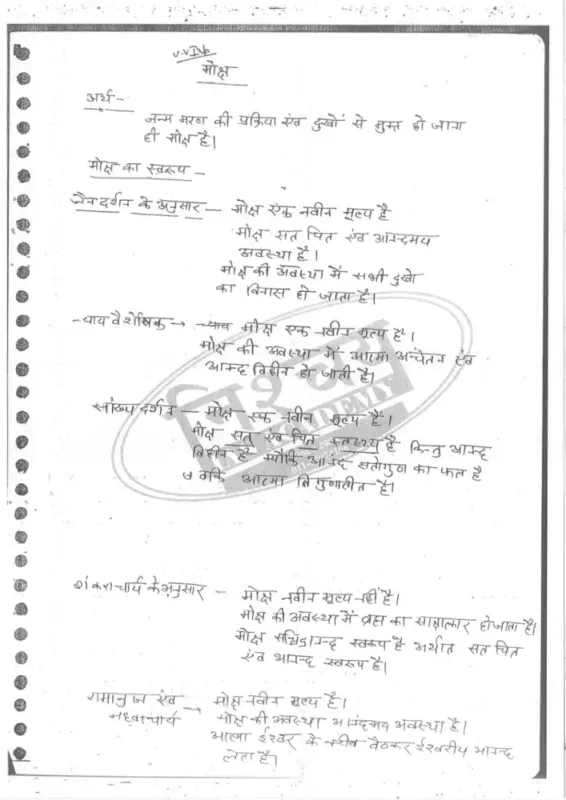 V.V.Imp
मोक्ष
अर्थ -
जन्म मरण की प्रक्रिया एंव दुखों से मुक्त हो जाना
ही मोक्ष है।
मोक्ष का स्वरूप -
जैन दर्शन के अनुसार - मोक्ष एक नवीन मूल्य है
मोक्ष सत चित एंव आनन्दमय
अवस्था है।
मोक्ष की अवस्था में सभी दुखो
का विनास हो जाता है।
न्याय वैशेषिक → न्याय मोक्ष एक नवीन मूल्य है।
मोक्ष की अवस्था में आत्मा अचेतन एंव
आनन्द विहीन हो जाती है।
सांख्य दर्शन - मोक्ष एक नवीन मूल्य है।
मोक्ष सत एंव चित स्वरूप है किन्तु आनन्द
विहीन है क्योंकि आनन्द सतोगुण का फल है
जबकि आत्मा त्रिगुणातीत है।
निश्चय
ACADEMY
शंकराचार्य के अनुसार - मोक्ष नवीन मूल्य नहीं है।
मोक्ष की अवस्था में ब्रह्म का साक्षात्कार हो जाता है।
मोक्ष सच्चिदानन्द स्वरूप है अर्थात सत चित
एंव आनन्द स्वरूप है।
रामानुज एंव → मोक्ष नवीन मूल्य है।
मध्वाचार्य मोक्ष की अवस्था आनंदमय अवस्था है।
आत्मा ईश्वर के समीप बैठकर ईश्वरीय आनन्द
लेता है।